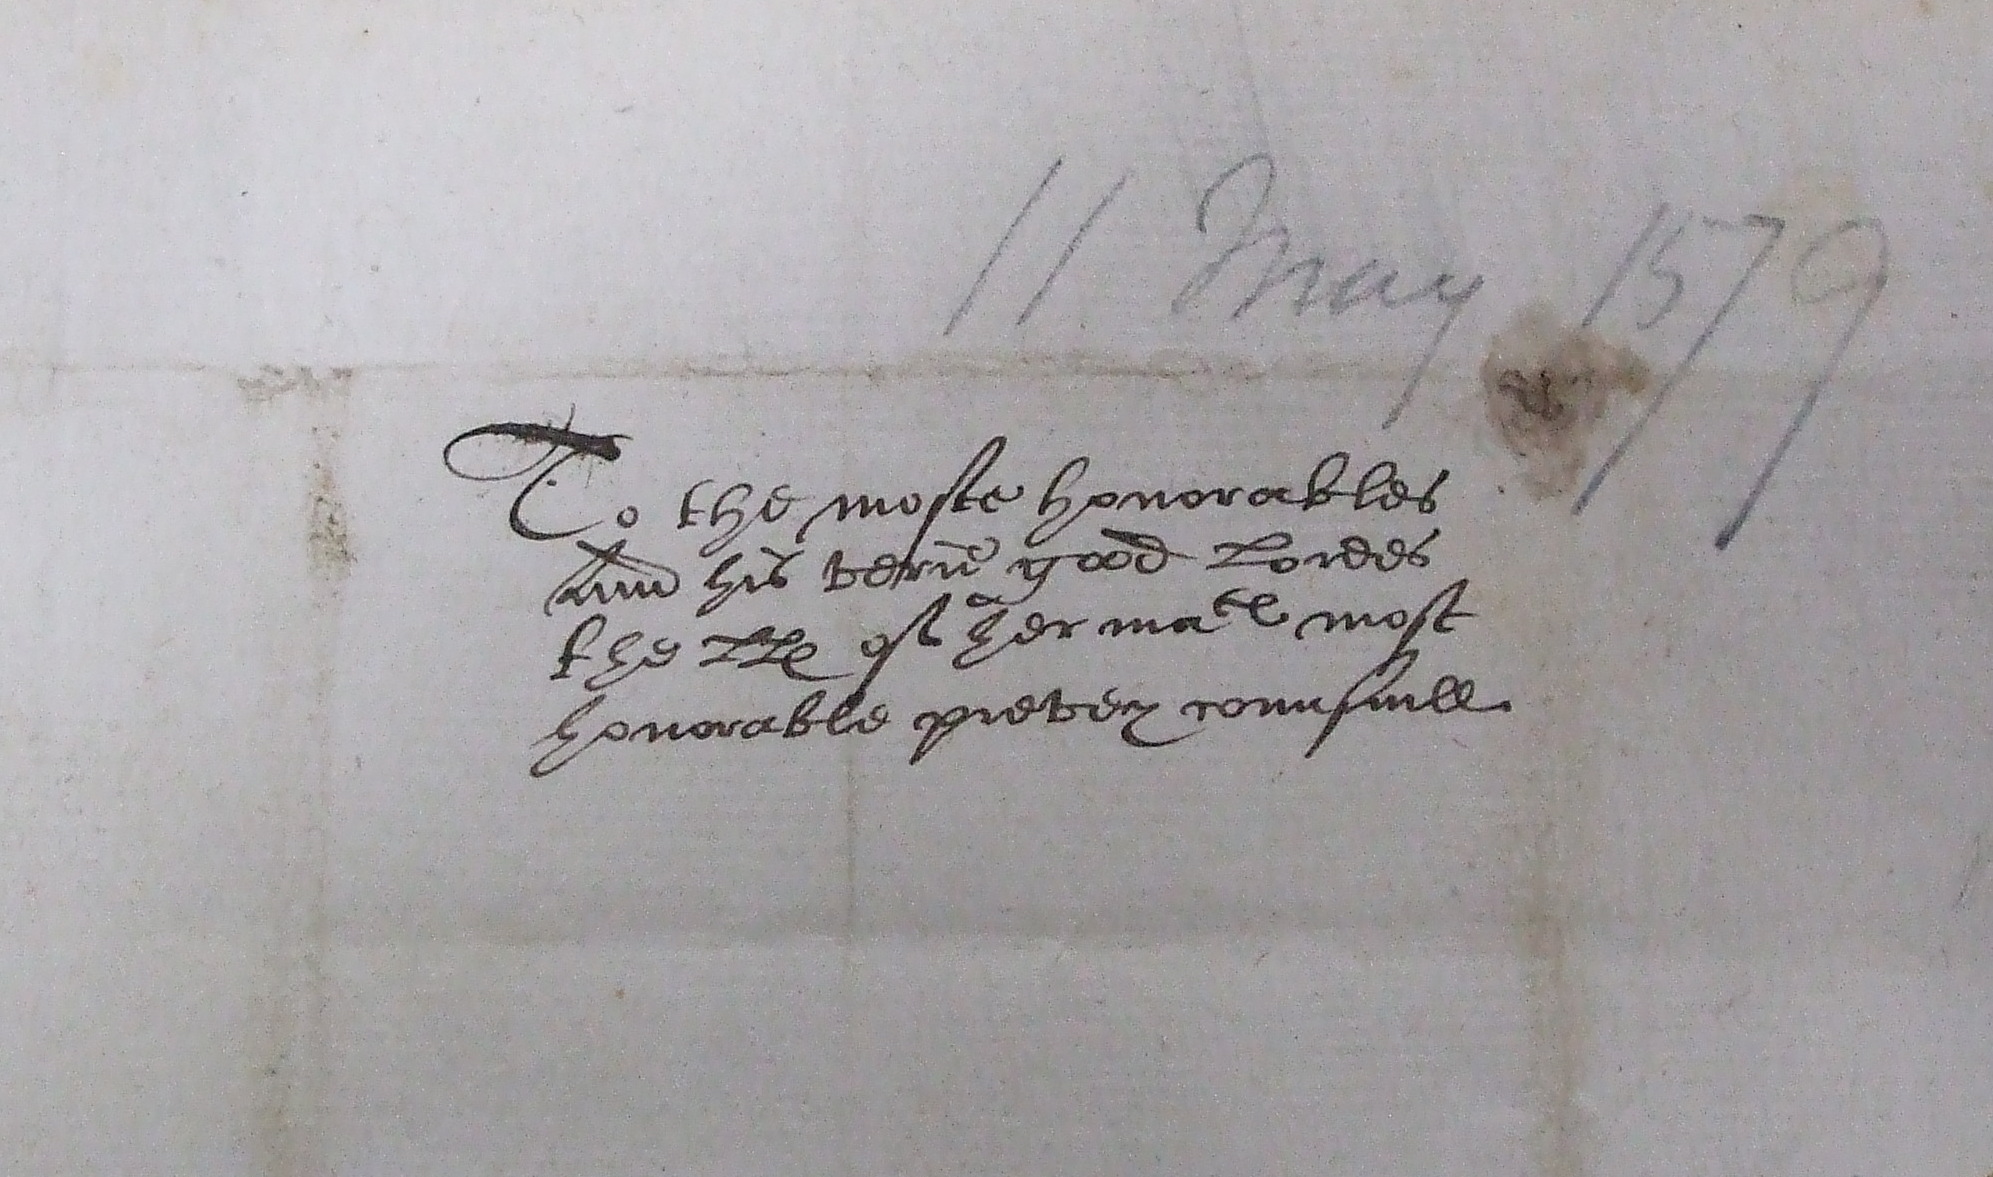 11 May 1579
To the moste honorables
And his verie good Lordes
the LLs of her matie most
honorable prevey counsaill.